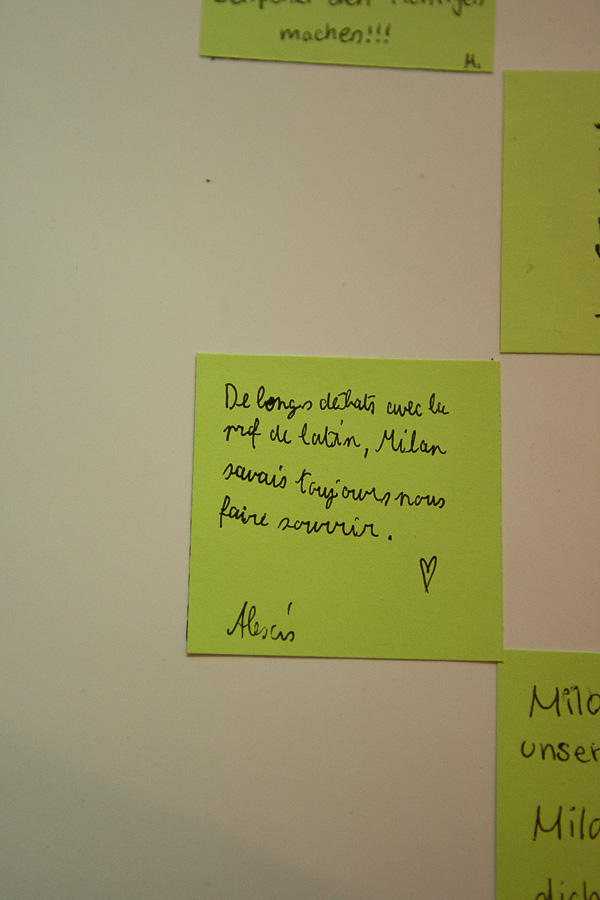 Zeitpunkt den richtigen
machen!!!
M.
De longs débats avec le
prof de latin, Milan
savais toujours nous
faire sourrir.
♡
Alexis
Mila
unser
Mila
dich